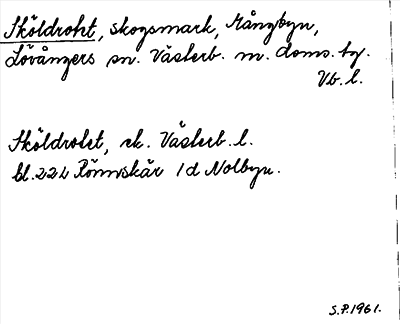 Sköldrotet, skogsmark, Mångbyn,
Lövångers sn. Västerb. m. doms. tg.
Vb. l.
Sköldrotet, ek. Västerb. l.
bl. 22L Rönnskär 1d Nolbyn.
S.P. 1961.